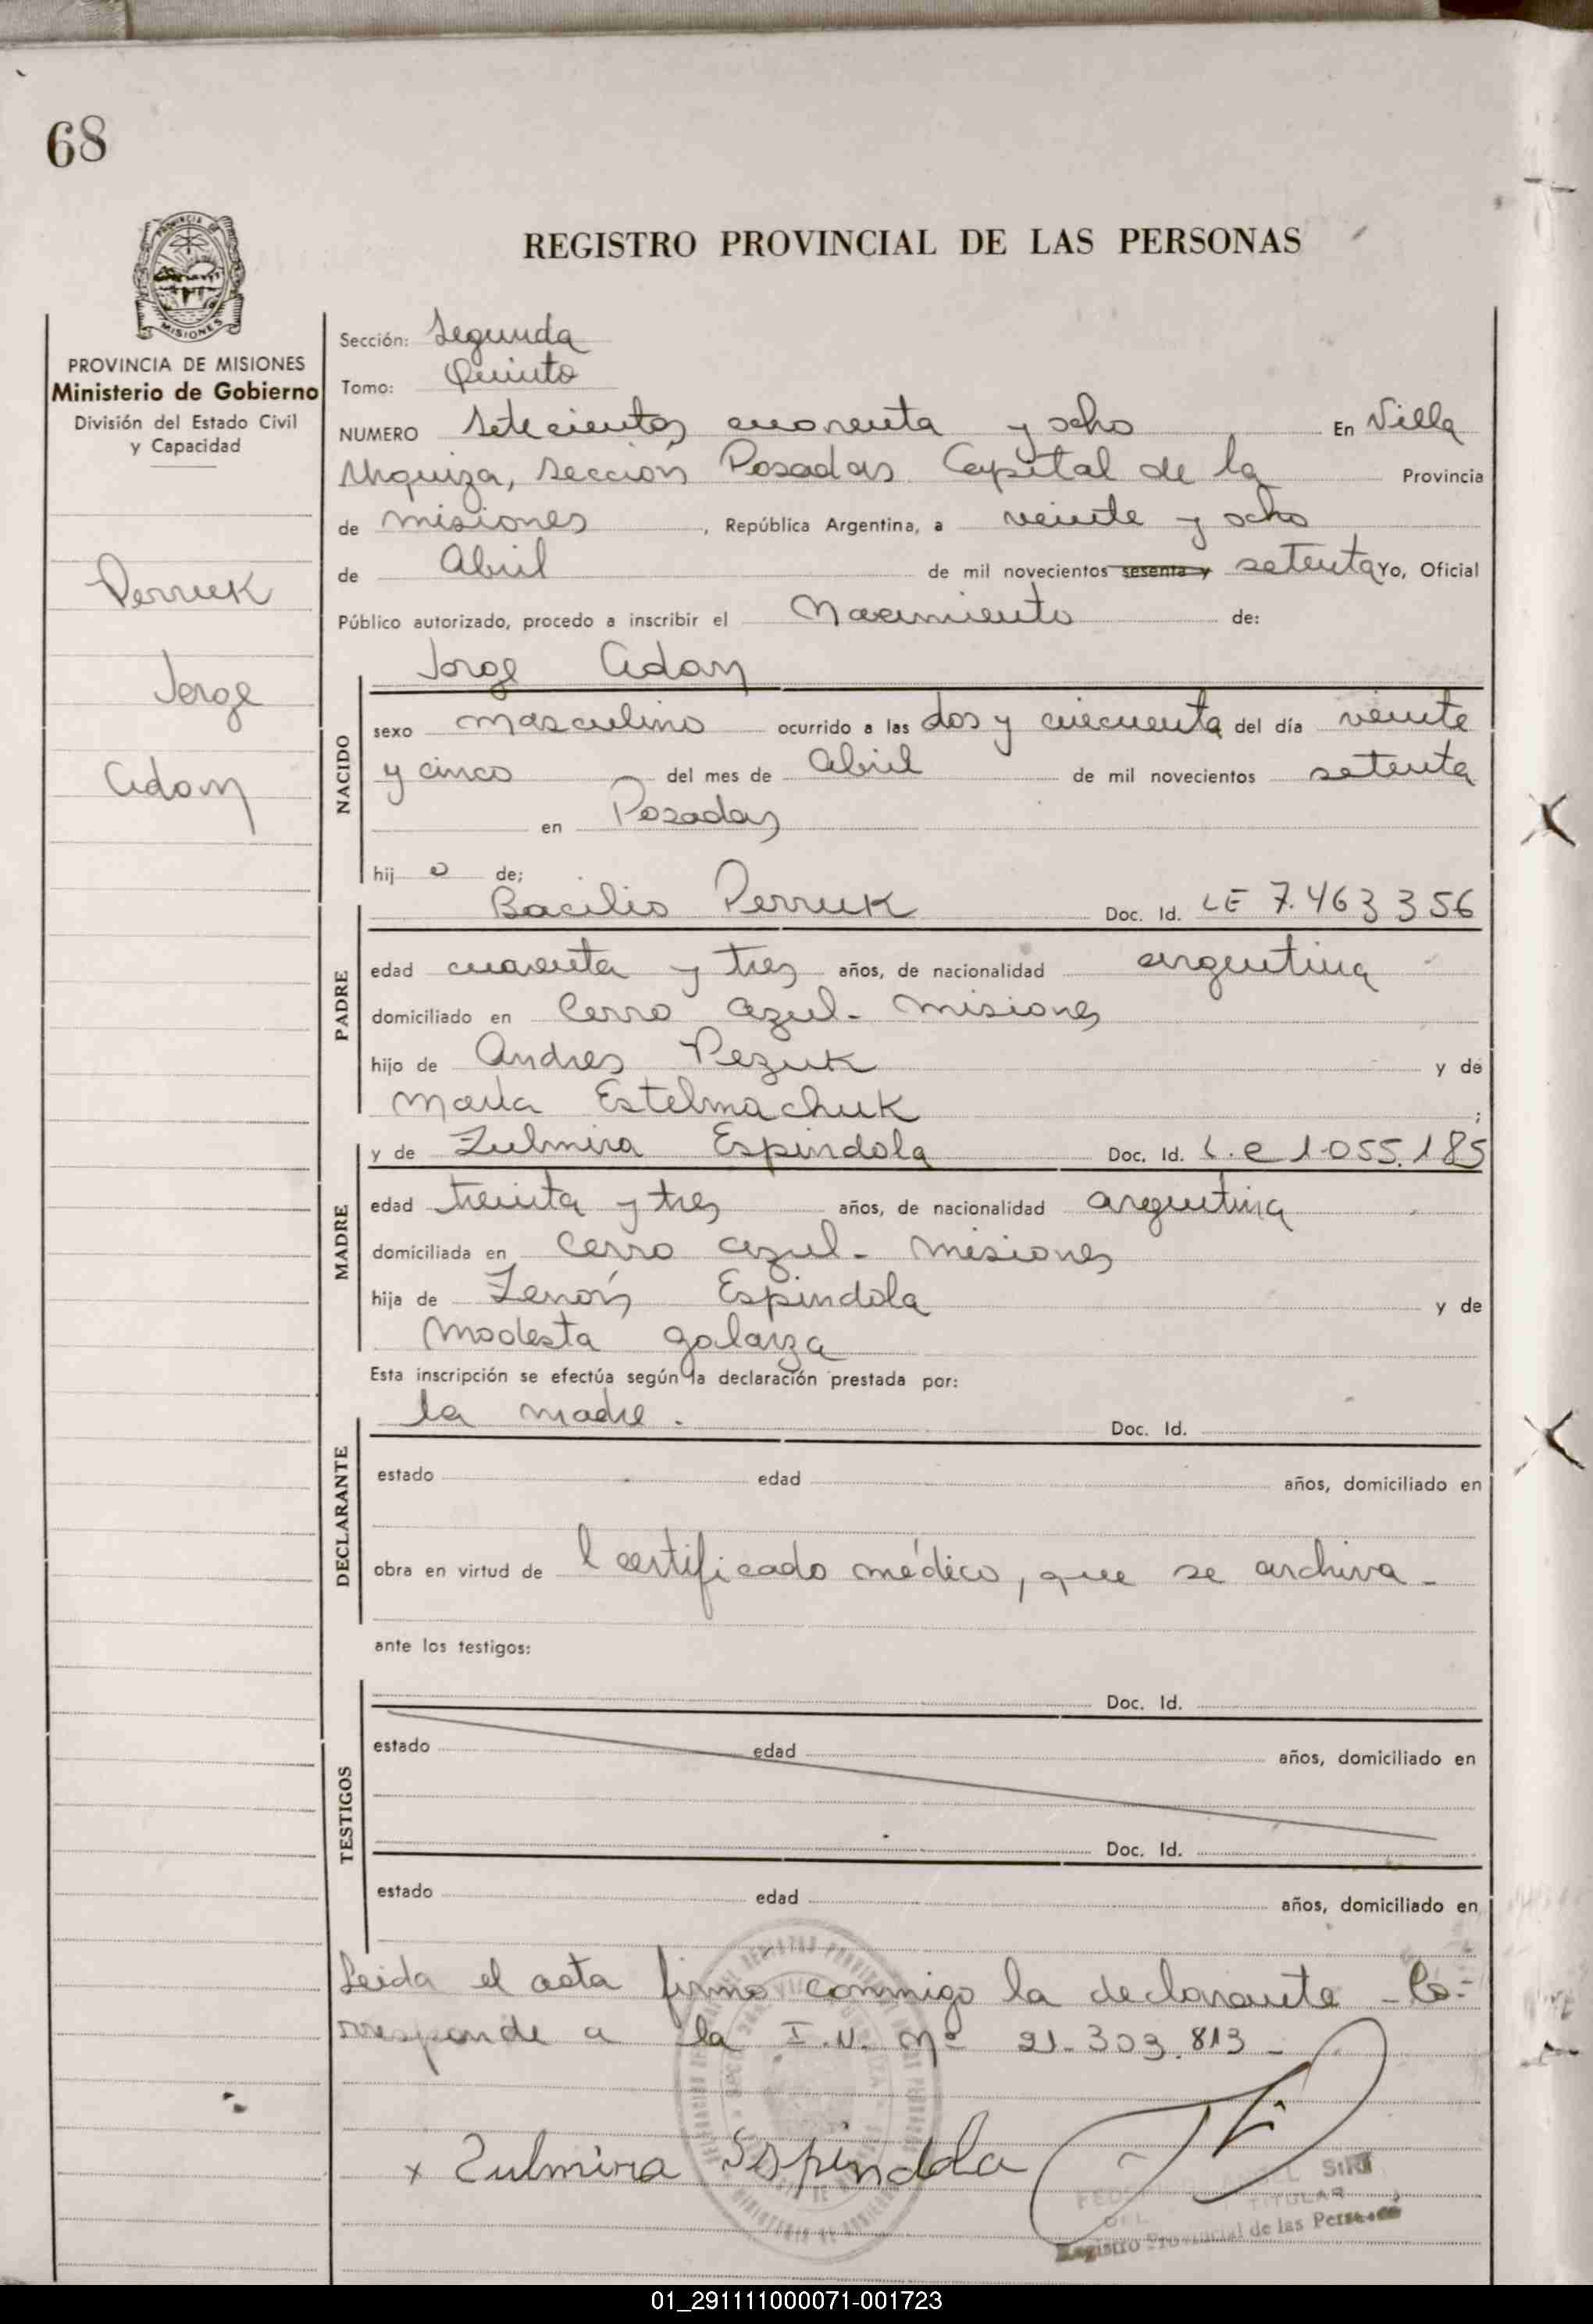 68
PROVINCIA DE
MISIONES
REGISTRO PROVINCIAL DE LAS PERSONAS
PROVINCIA DE MISIONES
Ministerio de Gobierno
División del Estado Civil
y Capacidad
Perruk
Jorge
Adan
Sección: Segunda
Tomo: Quinto
NUMERO Setecientos cuarenta y ocho En Villa
Urquiza, Sección Posadas Capital de la Provincia
de Misiones, República Argentina, a veinte y ocho
de Abril de mil novecientos sesenta y setenta Yo, Oficial
Público autorizado, procedo a inscribir el Nacimiento de:
Jorge Adan
NACIDO
sexo masculino ocurrido a las dos y cincuenta del día veinte
y cinco del mes de Abril de mil novecientos setenta
en Posadas
hijo de;
Bacilio Perruk Doc. Id. LE 7.463356
PADRE
edad cuarenta y tres años, de nacionalidad argentina
domiciliado en Cerro Azul - Misiones
hijo de Andres Pezuk y de
Maria Estelmachuk ;
y de Zulmira Espindola Doc. Id. L.C 1.055.185
MADRE
edad treinta y tres años, de nacionalidad argentina
domiciliada en Cerro Azul - Misiones
hija de Zenón Espindola y de
Modesta Galarza
Esta inscripción se efectúa según la declaración prestada por:
la madre. Doc. Id.
DECLARANTE
estado edad años, domiciliado en
obra en virtud de l certificado médico, que se archiva -
ante los testigos:
Doc. Id.
TESTIGOS
estado edad años, domiciliado en
Doc. Id.
estado edad años, domiciliado en
Leida el acta firma conmigo la declarante - Co-
rresponde a la I.N. Nº 21-303.813 -
x Zulmira Espindola
SIRI
TITULAR
DEL
Registro Provincial de las Personas
01_291111000071-001723